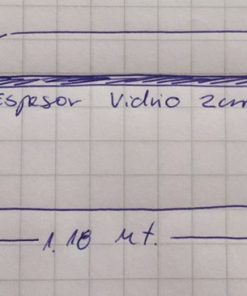 Espesor Vidrio 2cm
1.18 Mt.